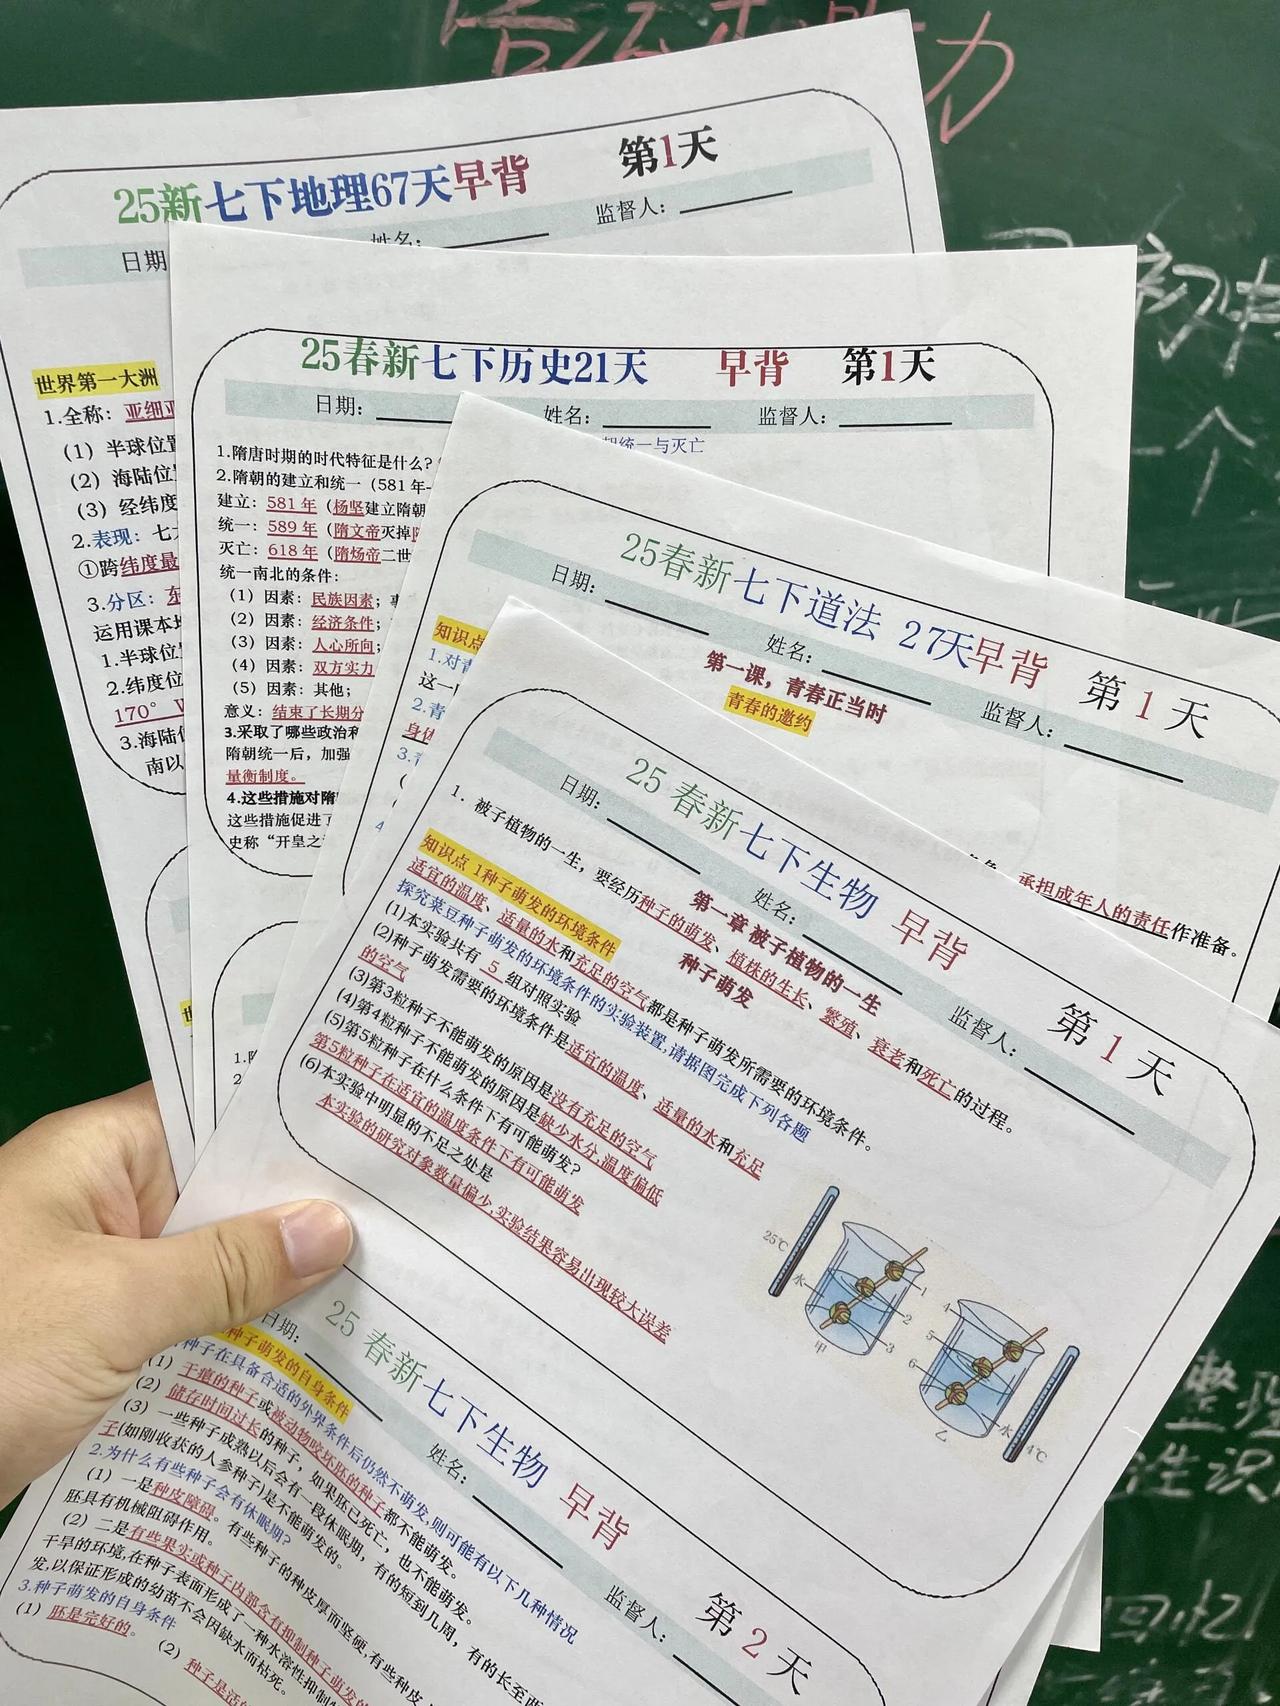 力
25新七下地理67天早背 第1天
日期 姓名: 监督人:
世界第一大洲
1.全称:亚细亚
(1) 半球位置
(2) 海陆位
(3) 经纬度
2.表现:七
①跨纬度最
3.分区:东
运用课本
1.半球位
2.纬度位
170° W
3.海陆
南以
25春新七下历史21天 早背 第1天
日期: 姓名: 监督人:
统一与灭亡
1.隋唐时期的时代特征是什么?
2.隋朝的建立和统一(581年-
建立:581年(杨坚建立隋朝
统一:589年(隋文帝灭掉
灭亡:618年(隋炀帝二世
统一南北的条件:
(1)因素:民族因素;
(2)因素:经济条件;
(3)因素:人心所向;
(4)因素:双方实力
(5)因素:其他;
意义:结束了长期分
3.采取了哪些政治和
隋朝统一后,加强
量衡制度。
4.这些措施对隋
这些措施促进了
史称“开皇之
25春新七下道法 27天早背 第1天
日期: 姓名: 监督人:
第一课,青春正当时
青春的邀约
知识点
1.对青
这一
2.青
身体
3.
4
承担成年人的责任作准备。
25 春新七下生物 早背 第1天
日期: 姓名: 监督人:
第一章 被子植物的一生
种子萌发
1. 被子植物的一生,要经历种子的萌发、植株的生长、繁殖、衰老和死亡的过程。
知识点 1种子萌发的环境条件
适宜的温度、适量的水和充足的空气都是种子萌发所需要的环境条件。
探究菜豆种子萌发的环境条件的实验装置,请据图完成下列各题
(1)本实验共有 5 组对照实验
(2)种子萌发需要的环境条件是适宜的温度、适量的水和充足
的空气
(3)第3粒种子不能萌发的原因是没有充足的空气
(4)第4粒种子不能萌发的原因是缺少水分,温度偏低
(5)第5粒种子在什么条件下有可能萌发?
第5粒种子在适宜的温度条件下有可能萌发
(6)本实验中明显的不足之处是
本实验的研究对象数量偏少,实验结果容易出现较大误差
25℃
水
1
2
3
甲
4
5
6
水
4℃
乙
25 春新七下生物 早背 第2天
日期: 姓名: 监督人:
种子萌发的自身条件
种子在具备合适的外界条件后仍然不萌发,则可能有以下几种情况
(1) 干瘪的种子或被动物咬坏胚的种子都不能萌发。
(2) 储存时间过长的种子,如果胚已死亡,也不能萌发。
(3) 一些种子成熟以后会有一段休眠期,有的短到几周,有的长至
子(如刚收获的人参种子)是不能萌发的。
2.为什么有些种子会有休眠期?
(1) 一是种皮障碍。有些种子的种皮厚而坚硬,有些种皮
胚具有机械阻碍作用。
(2) 二是有些果实或种子内部含有抑制种子萌发的
干旱的环境,在种子表面形成了一种水溶性抑制
发,以保证形成的幼苗不会因缺水而枯死。
3.种子萌发的自身条件
(1) 胚是完好的。 (2) 种子是活
初中
个
整理
性识
回忆